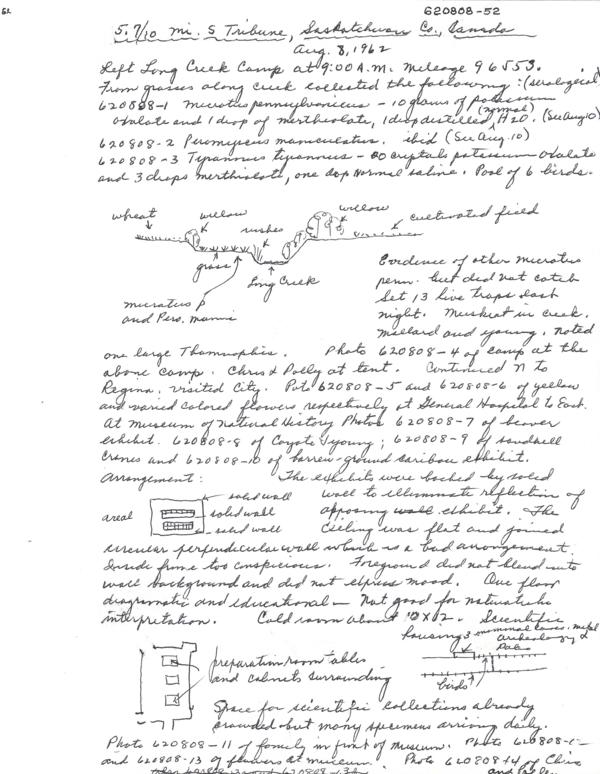 62
620808-52
5.7/10 mi. S Tribune, Saskatchewan Co., Canada
Aug. 8, 1962
Left Long Creek Camp at 9:00 A.M. Mileage 96553.
From grasses along creek collected the following: (serological)
620808-1 Microtus pennsylvanicus - 10 grams of potassium
oxalate and 1 drop of merthiolate, 1 drop distilled (normal) H2O. (See Aug 10)
620808-2 Peromyscus maniculatus. ibid (See Aug. 10)
620808-3 Tyrannus tyrannus - 20 crystals potassium oxalate
and 3 drops merthiolate, one drop normal saline. Pool of 6 birds.
wheat willow rushes willow cultivated field
grass Long Creek
microtus p
and Pero. mani
Evidence of other microtus
penn. but did not catch
Set 13 live traps last
night. Muskrat in creek.
Mallard and young, noted
one large Thamnophis. Photo 620808-4 of camp at the
above camp. Chris & Polly at tent. Continued N to
Regina, visited City. Photo 620808-5 and 620808-6 of yellow
and varied colored flowers respectively at General Hospital to East.
At Museum of Natural History Photos 620808-7 of beaver
exhibit. 620808-8 of Coyote & young; 620808-9 of sandhill
Cranes and 620808-10 of barren-ground caribou exhibit.
Arrangement: The exhibits were backed by solid
wall to illuminate reflection of
opposing wall exhibit. The
ceiling was flat and joined
areal solid wall
solid wall
solid wall
circular perpendicular wall which is a bad arrangement.
Inside frame too conspicuous. Foreground did not blend into
wall background and did not express mood. One floor
diagramatic and educational - Not good for naturalistic
interpretation. Cold room about 10 x 12. Scientific
housing 3 mammal cases, metal
archeology &
Paleo
birds
preparation room tables
and cabinets surrounding
Space for scientific collections already
crowded but many specimens arriving daily.
Photo 620808-11 of family in front of museum. Photo 620808-12
and 620808-13 of flowers at museum. Photo 620808-14 of Chris
and Polly